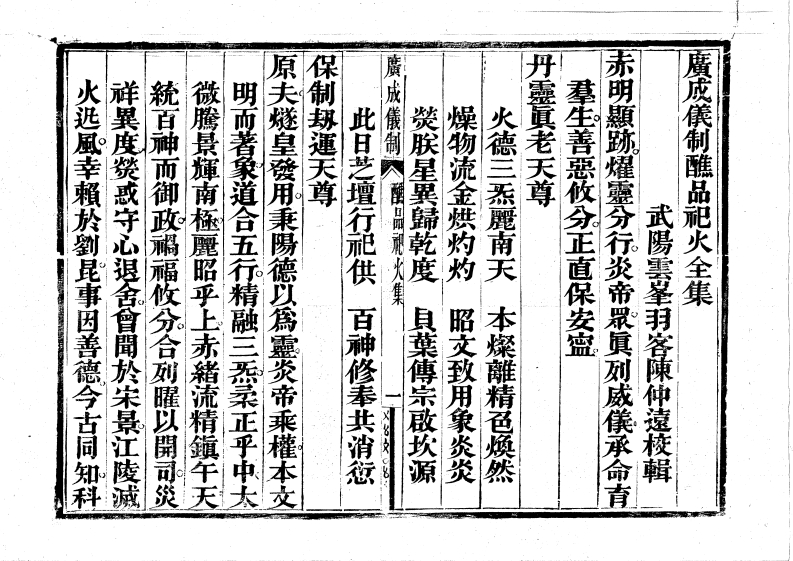 廣成儀制醮品祀火全集
武陽雲峯羽客陳仲遠校輯
赤明顯跡燿靈分行炎帝眾眞列威儀承命育
羣生善惡攸分正直保安寍
丹靈眞老天尊
火德三炁麗南天 本燦離精色煥然
燥物流金烘灼灼 昭文致用象炎炎
熒朕星異歸乾度 貝葉傳宗啟坎源
此日芝壇行祀供 百神修奉共消愆
廣成儀制 醮品祀火集 一
保制劫運天尊
原夫燧皇發用秉陽德以爲靈炎帝乘權本文
明而著象道合五行精融三炁柔正乎中大
微騰景輝南極麗昭乎上赤緒流精鎭午天
統百神而御政禍福攸分合列曜以開司災
祥異度熒惑守心退舍曾聞於宋景江陵滅
火迯風幸賴於劉昆事因善德今古同知科